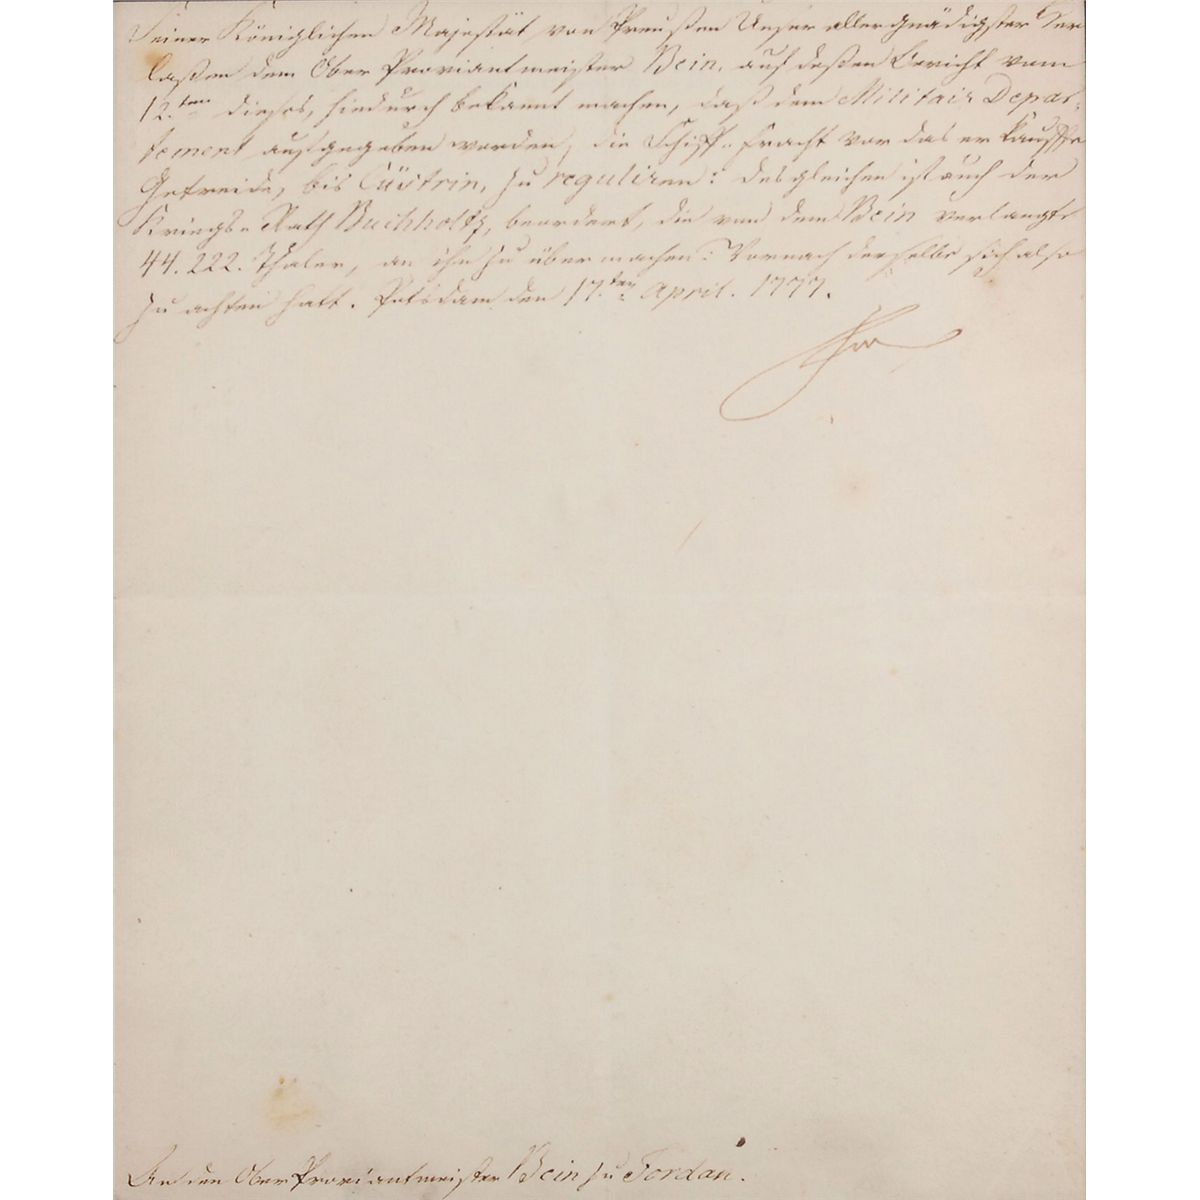 Seiner Königlichen Majestät von Preußen Unser allergnädigster Herr
laßen dem Ober Proviantmeister Bein, auf deßen Bericht vom
12.ten dieses, hiedurch bekannt machen, daß dem Militair Depar-
tement aufgegeben worden, die Schiff-Fracht vor das erkauffte
Getreide, bis Cüstrin, zu reguliren: desgleichen ist auch der
Kriegs-Rath Buchholtz, beordert, die von dem Bein verlangte
44.222. Thaler, an ihn zu übermachen: Wornach derselbe sich also
zu achten hatt. Potsdam den 17.ten April. 1777.
Fr
An den Ober Proviantmeister Bein zu Fordan.